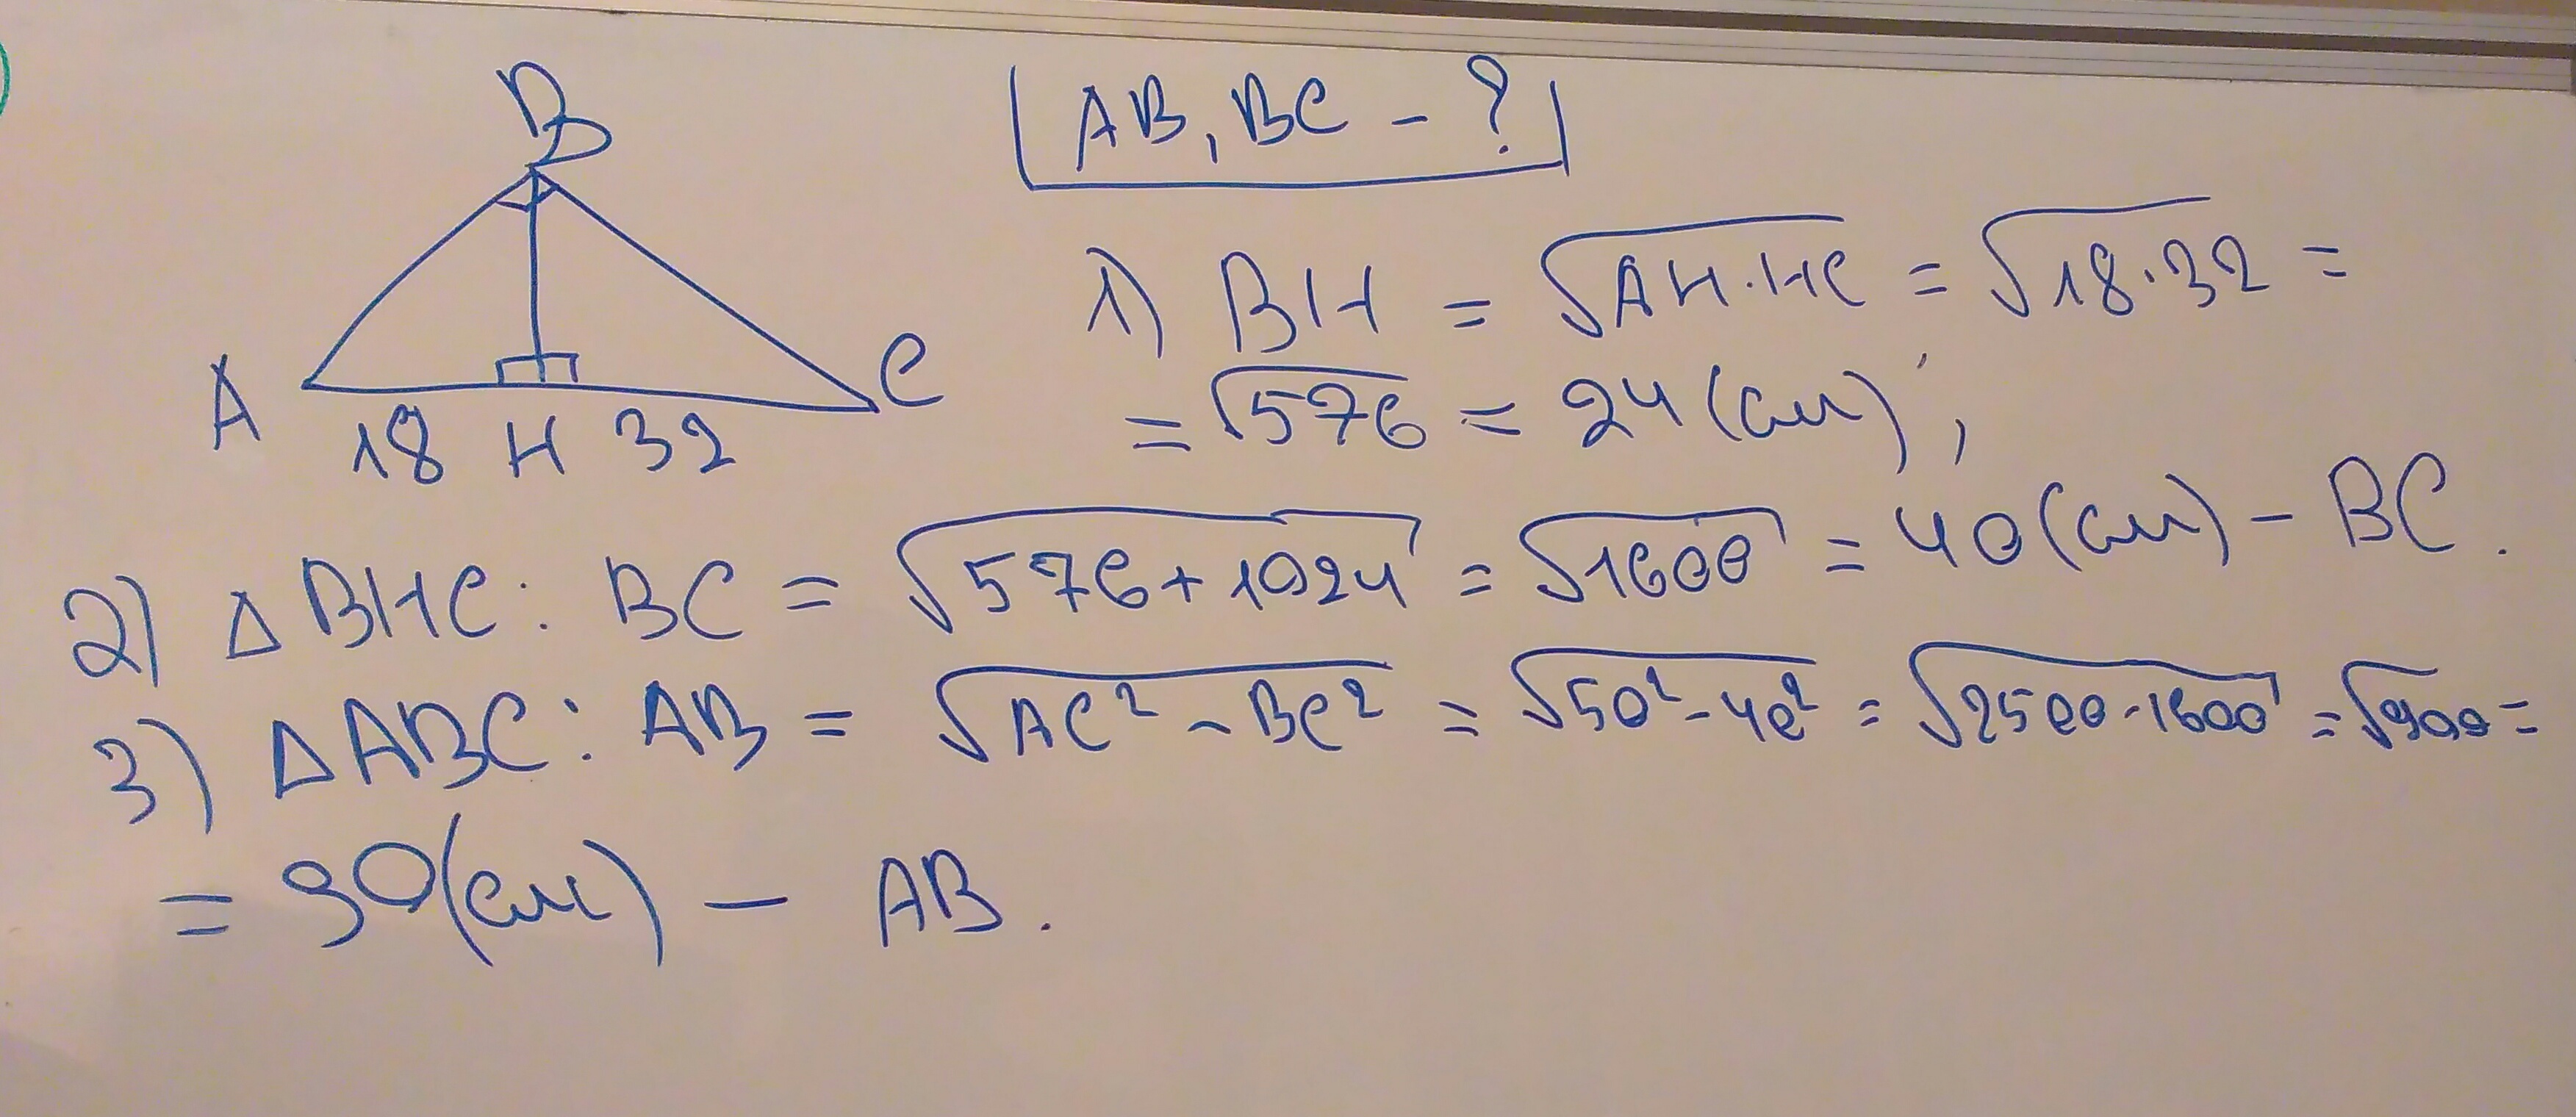 B
AB, BC - ?
A
C
18 H 32
1) BH = √AH·HC = √18·32 =
= √576 = 24 (см),
2) △BHC: BC = √576+1024 = √1600 = 40 (см) - BC.
3) △ABC: AB = √AC² - BC² = √50² - 40² = √2500-1600 = √900 =
= 30 (см) - AB.